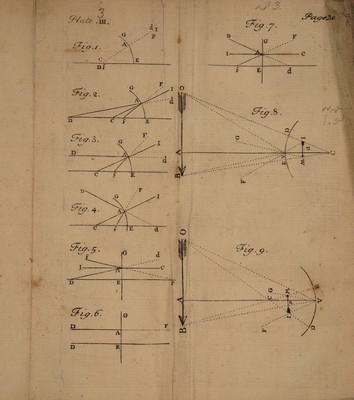 3
Plate. III.
n.3.
Page 20
Fig.1.
G
d I
F
A
C
D f
E
Fig.2.
G
F
I
A
d
D
C
f
E
Fig.3.
G
F
I
D
A
d
C
f
E
Fig.4.
D
G
F
I
C
f
E
Fig.5.
G
d
f
I
A
C
D
E
F
Fig.6.
D
A
F
D
E
Fig.7.
D
G
F
I
A
C
f
E
d
Fig.8.
O
G
D
I
A
E
M
C
B
F
Fig.9.
O
G
M
E
A
C
V
I
B
F
D